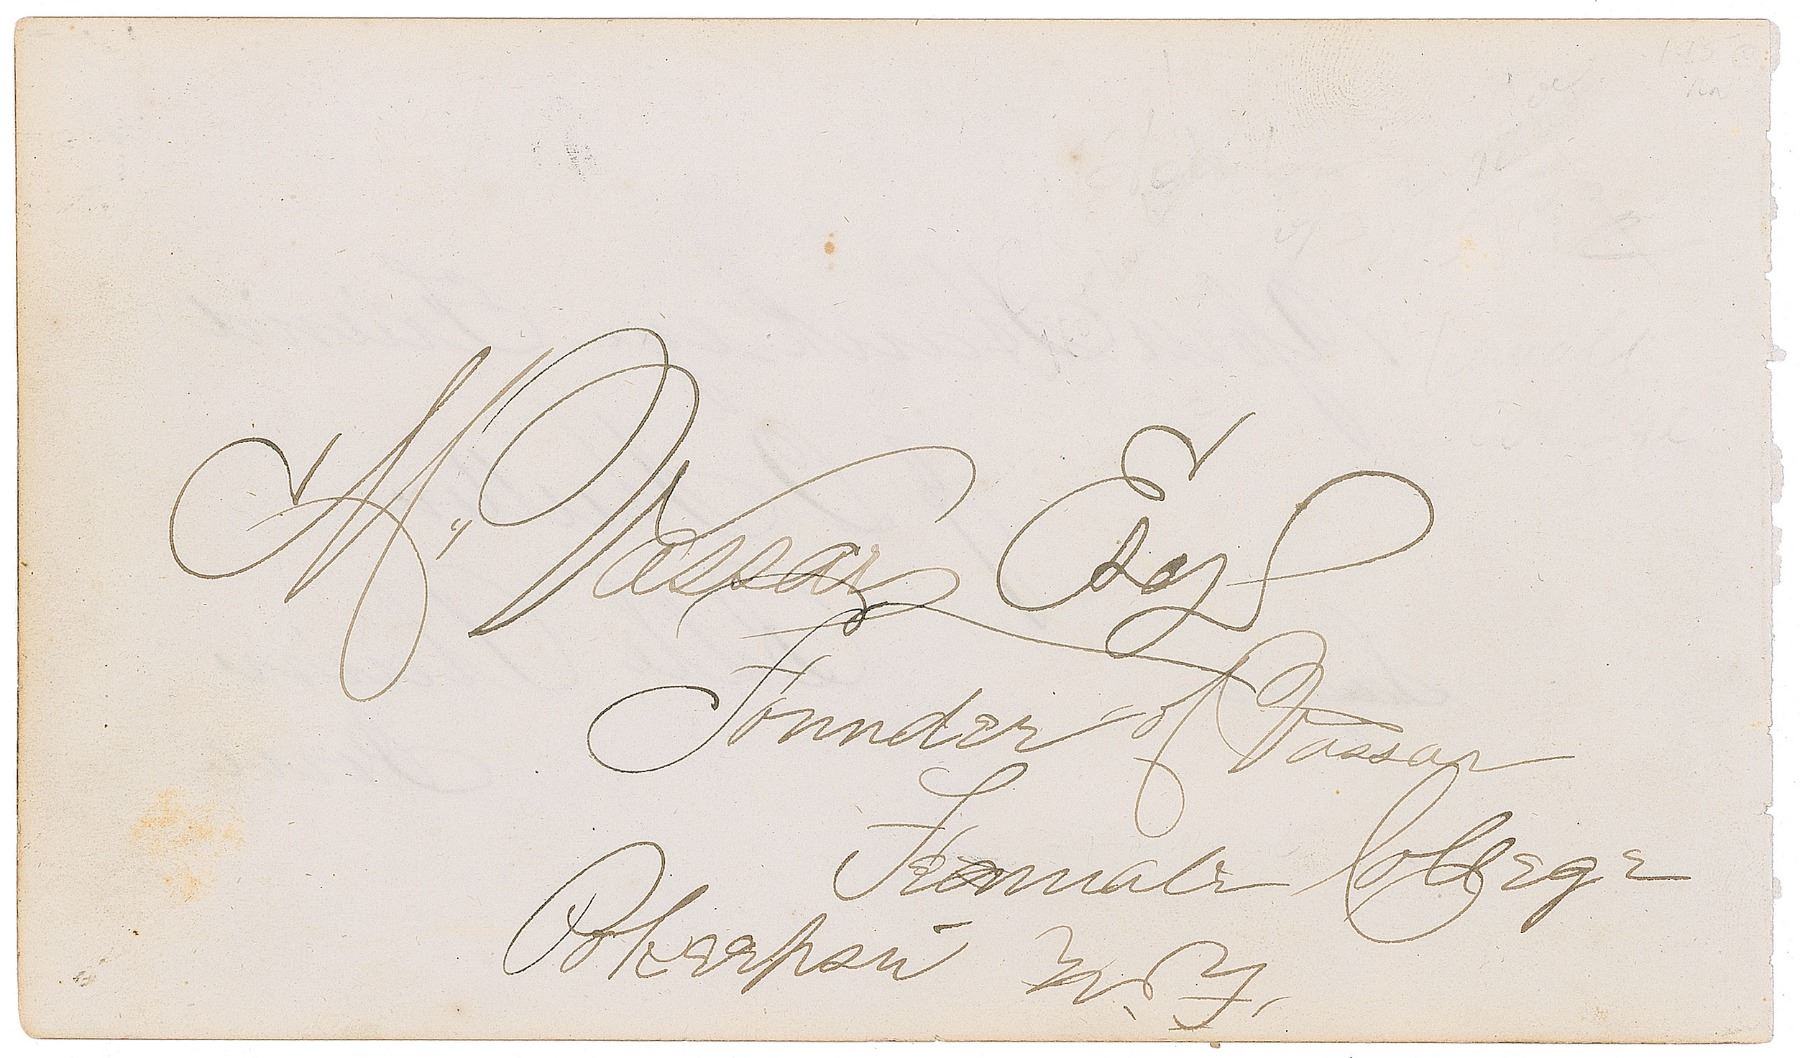 M. Vassar Esq
Founder of Vassar
Female College
Pokeepsie N.Y.